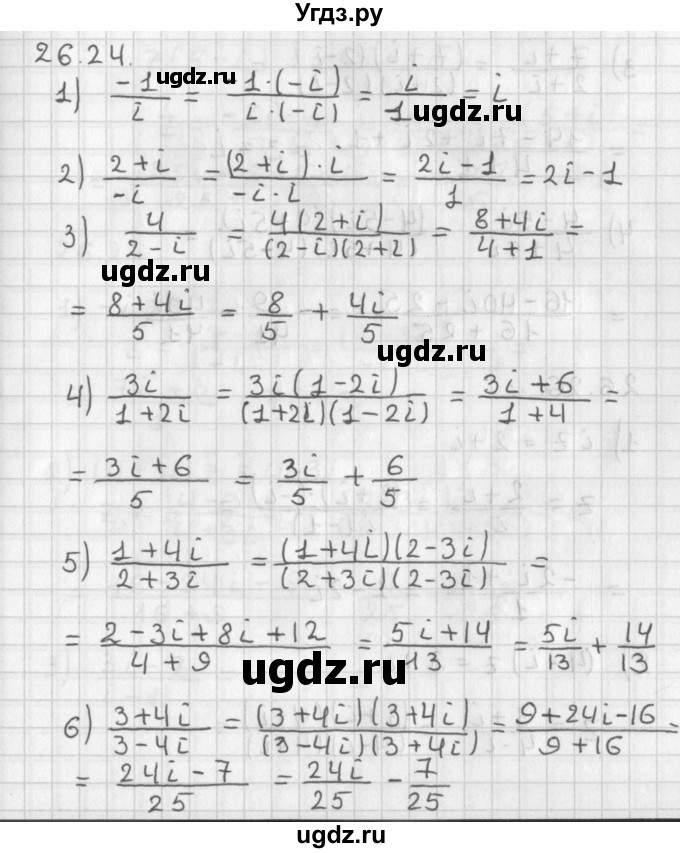 Угдз.ру
26.24.
1) -1/i = 1·(-i)/i·(-i) = i/1 = i
ugdz.ru
ugdz.ru
2) 2+i/-i = (2+i)·i/-i·i = 2i-1/1 = 2i-1
ugdz.ru
3) 4/2-i = 4(2+i)/(2-i)(2+2) = 8+4i/4+1 =
ugdz.ru
= 8+4i/5 = 8/5 + 4i/5
ugdz.ru
4) 3i/1+2i = 3i(1-2i)/(1+2i)(1-2i) = 3i+6/1+4 =
= 3i+6/5 = 3i/5 + 6/5
5) 1+4i/2+3i = (1+4i)(2-3i)/(2+3i)(2-3i) =
= 2-3i+8i+12/4+9 = 5i+14/13 = 5i/13 + 14/13
ugdz.ru
6) 3+4i/3-4i = (3+4i)(3+4i)/(3-4i)(3+4i) = 9+24i-16/9+16 =
= 24i-7/25 = 24i/25 - 7/25
ugdz.ru